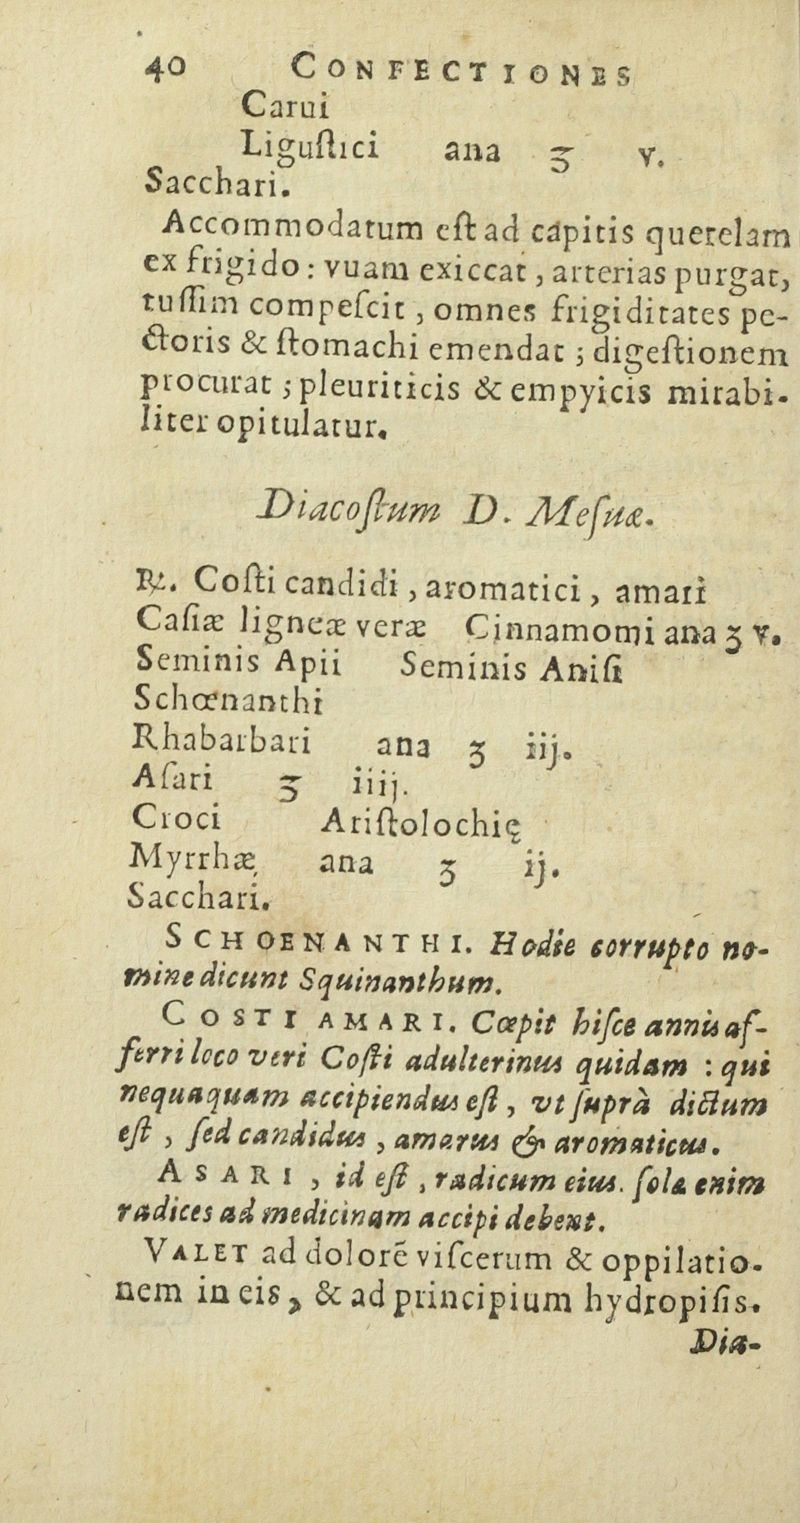 40 CONFECTIONES
Carui
Liguſtici ana ʒ v.
Sacchari.
Accommodatum eſt ad capitis querelam
ex frigido : vuam exiccat , arterias purgat,
tuſſim compeſcit , omnes frigiditates pe-
ctoris & ſtomachi emendat ; digeſtionem
procurat ; pleuriticis & empyicis mirabi-
liter opitulatur.
Diacoſtum D. Meſuæ.
℞. Coſti candidi , aromatici , amari
Caſiæ ligneæ veræ Cinnamomi ana ʒ v.
Seminis Apii Seminis Aniſi
Schœnanthi
Rhabarbari ana ʒ iij.
Aſari ʒ iiij.
Croci Ariſtolochię
Myrrhæ ana ʒ ij.
Sacchari.
SCHOENANTHI. Hodie corrupto no-
mine dicunt Squinanthum.
COSTI AMARI. Cœpit hiſce annis af-
ferri loco veri Coſti adulterinus quidam : qui
nequaquam accipiendus eſt , vt ſuprà dictum
eſt , ſed candidus , amarus & aromaticus.
ASARI , id eſt , radicum eius. ſola enim
radices ad medicinam accipi debent.
VALET ad dolorē viſcerum & oppilatio-
nem in eis , & ad principium hydropiſis.
Dia-